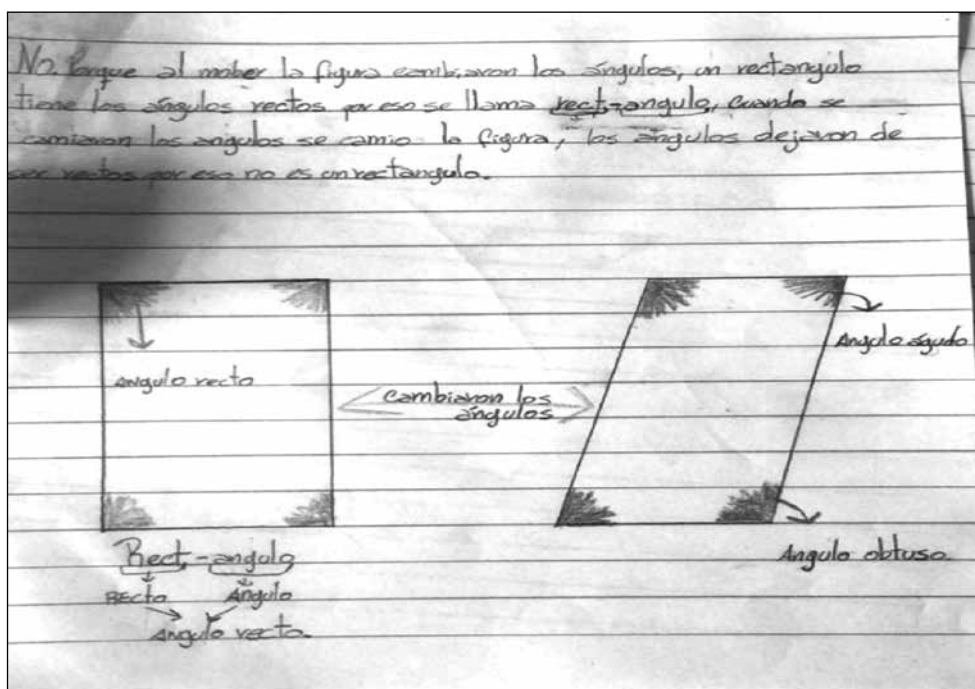 No. Porque al mober la figura cambiaron los ángulos, un rectangulo
tiene los ángulos rectos por eso se llama rect-angulo, cuando se
camiaron los angulos se camio la figura, los ángulos dejaron de
ser rectos por eso no es un rectangulo.
Angulo agudo
Angulo recto
Cambiaron los
ángulos
Rect-angulo
Angulo obtuso.
RECto Angulo
Angulo recto.